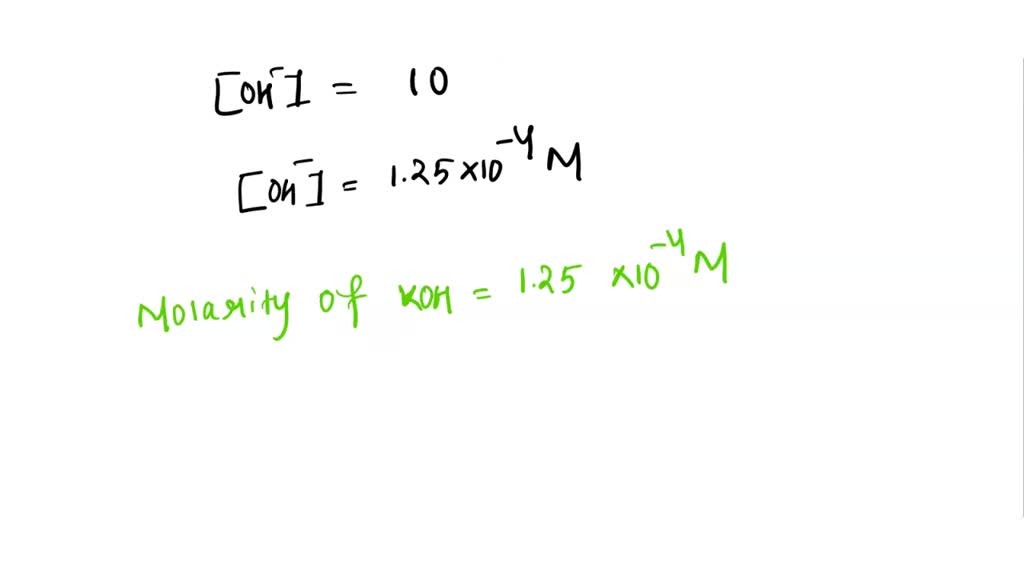 [OH⁻] = 10
[OH⁻] = 1.25 ×10⁻⁴ M
Molarity of KOH = 1.25 ×10⁻⁴ M